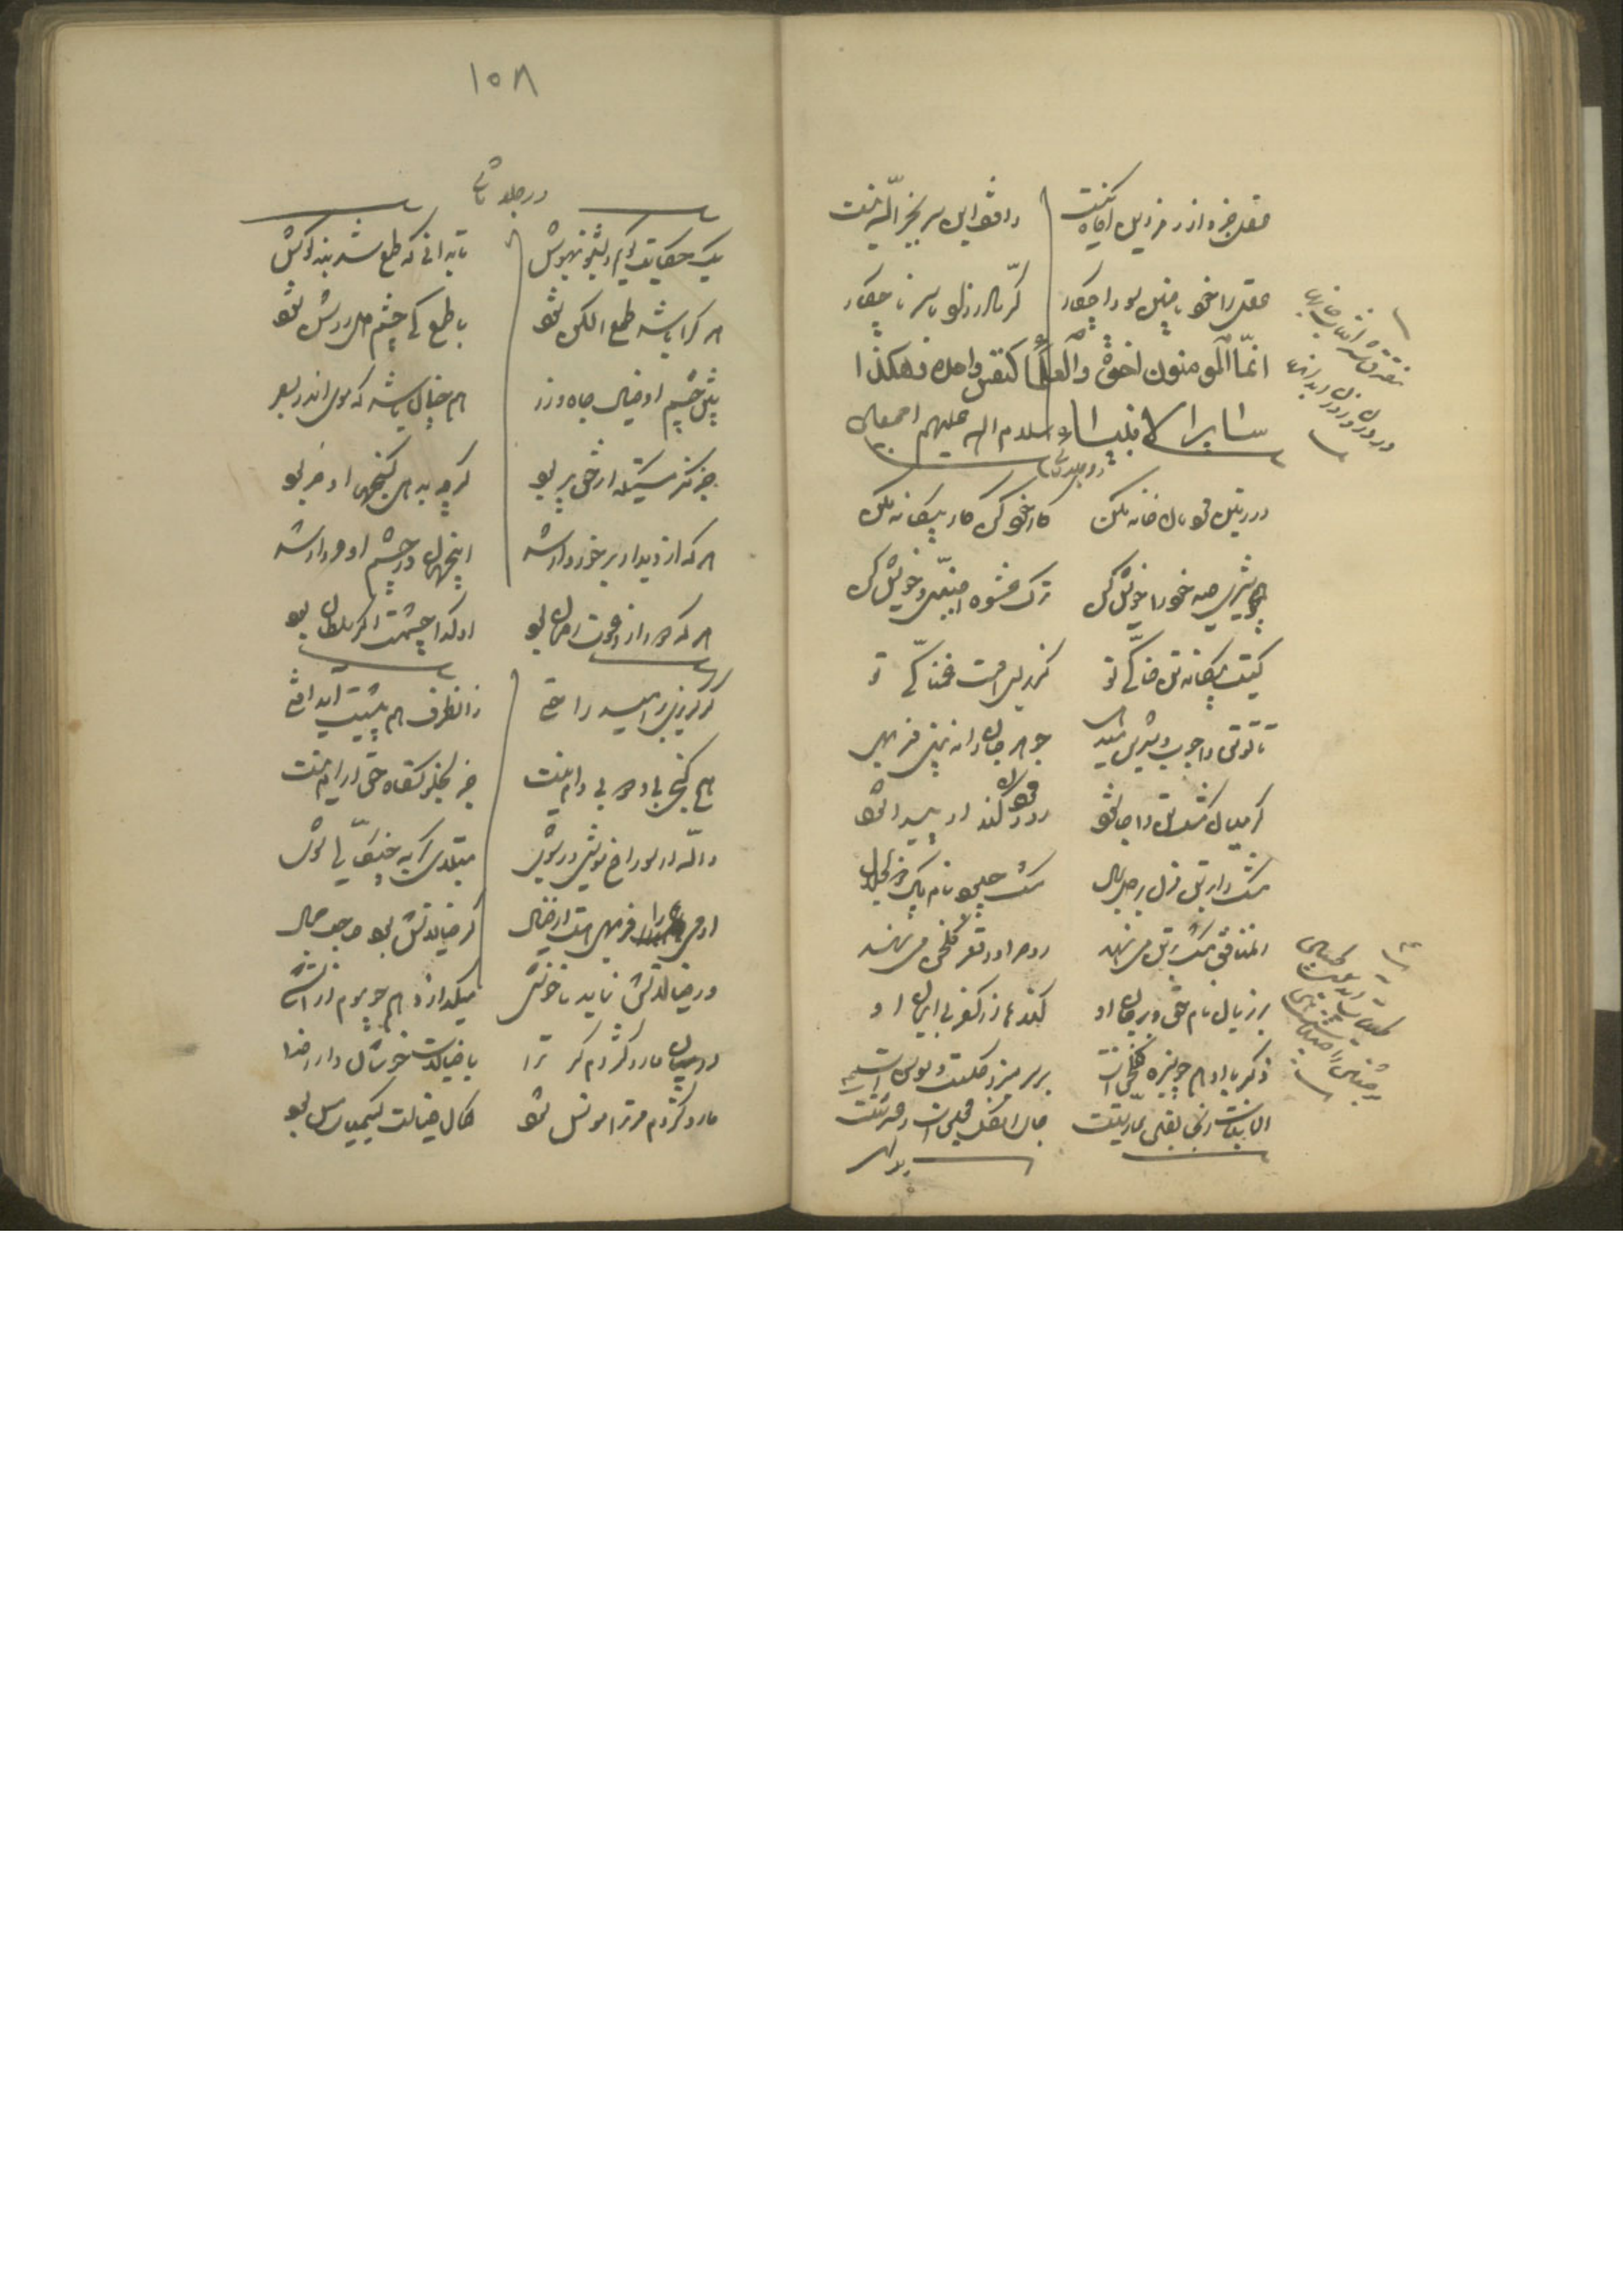 عقل جزو از رمز این آگاه نیست
واقف این سر بجز اللّه نیست
عقل را خود با چنین سودا چکار
کرّ مادرزاد با سرنا چکار
انّما المومنون اخوة والعلما کنفس واحدة وهکذا
سایر الانبیاء سلام الله علیهم اجمعین
در جلد ثانی
در زمین مردمان خانه مکن
کار خود کن کار بیگانه مکن
خویش کن
ترک خویش کن
کیست بیگانه تن خاکی تو
کز برای اوست غمناکی تو
تا تو تن را چرب و شیرین میدهی
جوهر جان را نبینی فربهی
گر میان مشک تن را جا شود
روز مردن گند او پیدا شود
مشک را بر تن مزن بر دل بمال
مشک چبود نام پاک ذوالجلال
آن منافق مشک بر تن می نهد
روح را در قعر گلخن می نهد
بر زبان نام حق و در جان او
گندها از کفر بی ایمان او
ذکر با او همچو سبزه گلخن است
بر سر مبرز گلست و سوسن است
آن نبات آنجا یقین عاریتست
جای آن گل مجلس است و عشرتست
۱۵۸
در جلد ثانی
یک حکایت گویم بشنو بهوش
تا بدانی که طمع شد بند گوش
هر کرا باشد طمع الکن شود
با طمع کی چشم دل روشن شود
پیش چشم او خیال جاه و زر
همچنان باشد که موی اندر بصر
جز مگر مستی که از حق پر بود
گرچه بدهی گنجها او حر بود
هر که از دیدار برخوردار شد
این جهان در چشم او مردار شد
در چشمت اگر سلطان بود
گر گریزی بر امید راحتی
زان طرف هم پیشت آید آفتی
هیچ کنجی بی دد و بی دام نیست
جز بخلوتگاه حق آرام نیست
واللّه ار سوراخ موشی در روی
مبتلای گربه چنگالی شوی
آدمی را فربهی هست از خیال
گر خیالاتش بود صاحب جمال
ور خیالاتش نماید ناخوشی
میگدازد همچو موم از آتشی
در میان مار و کژدم گر ترا
با خیالات خوشان دارد خدا
مار و کژدم مر ترا مونس شود
کان خیالت کیمیای مس بود